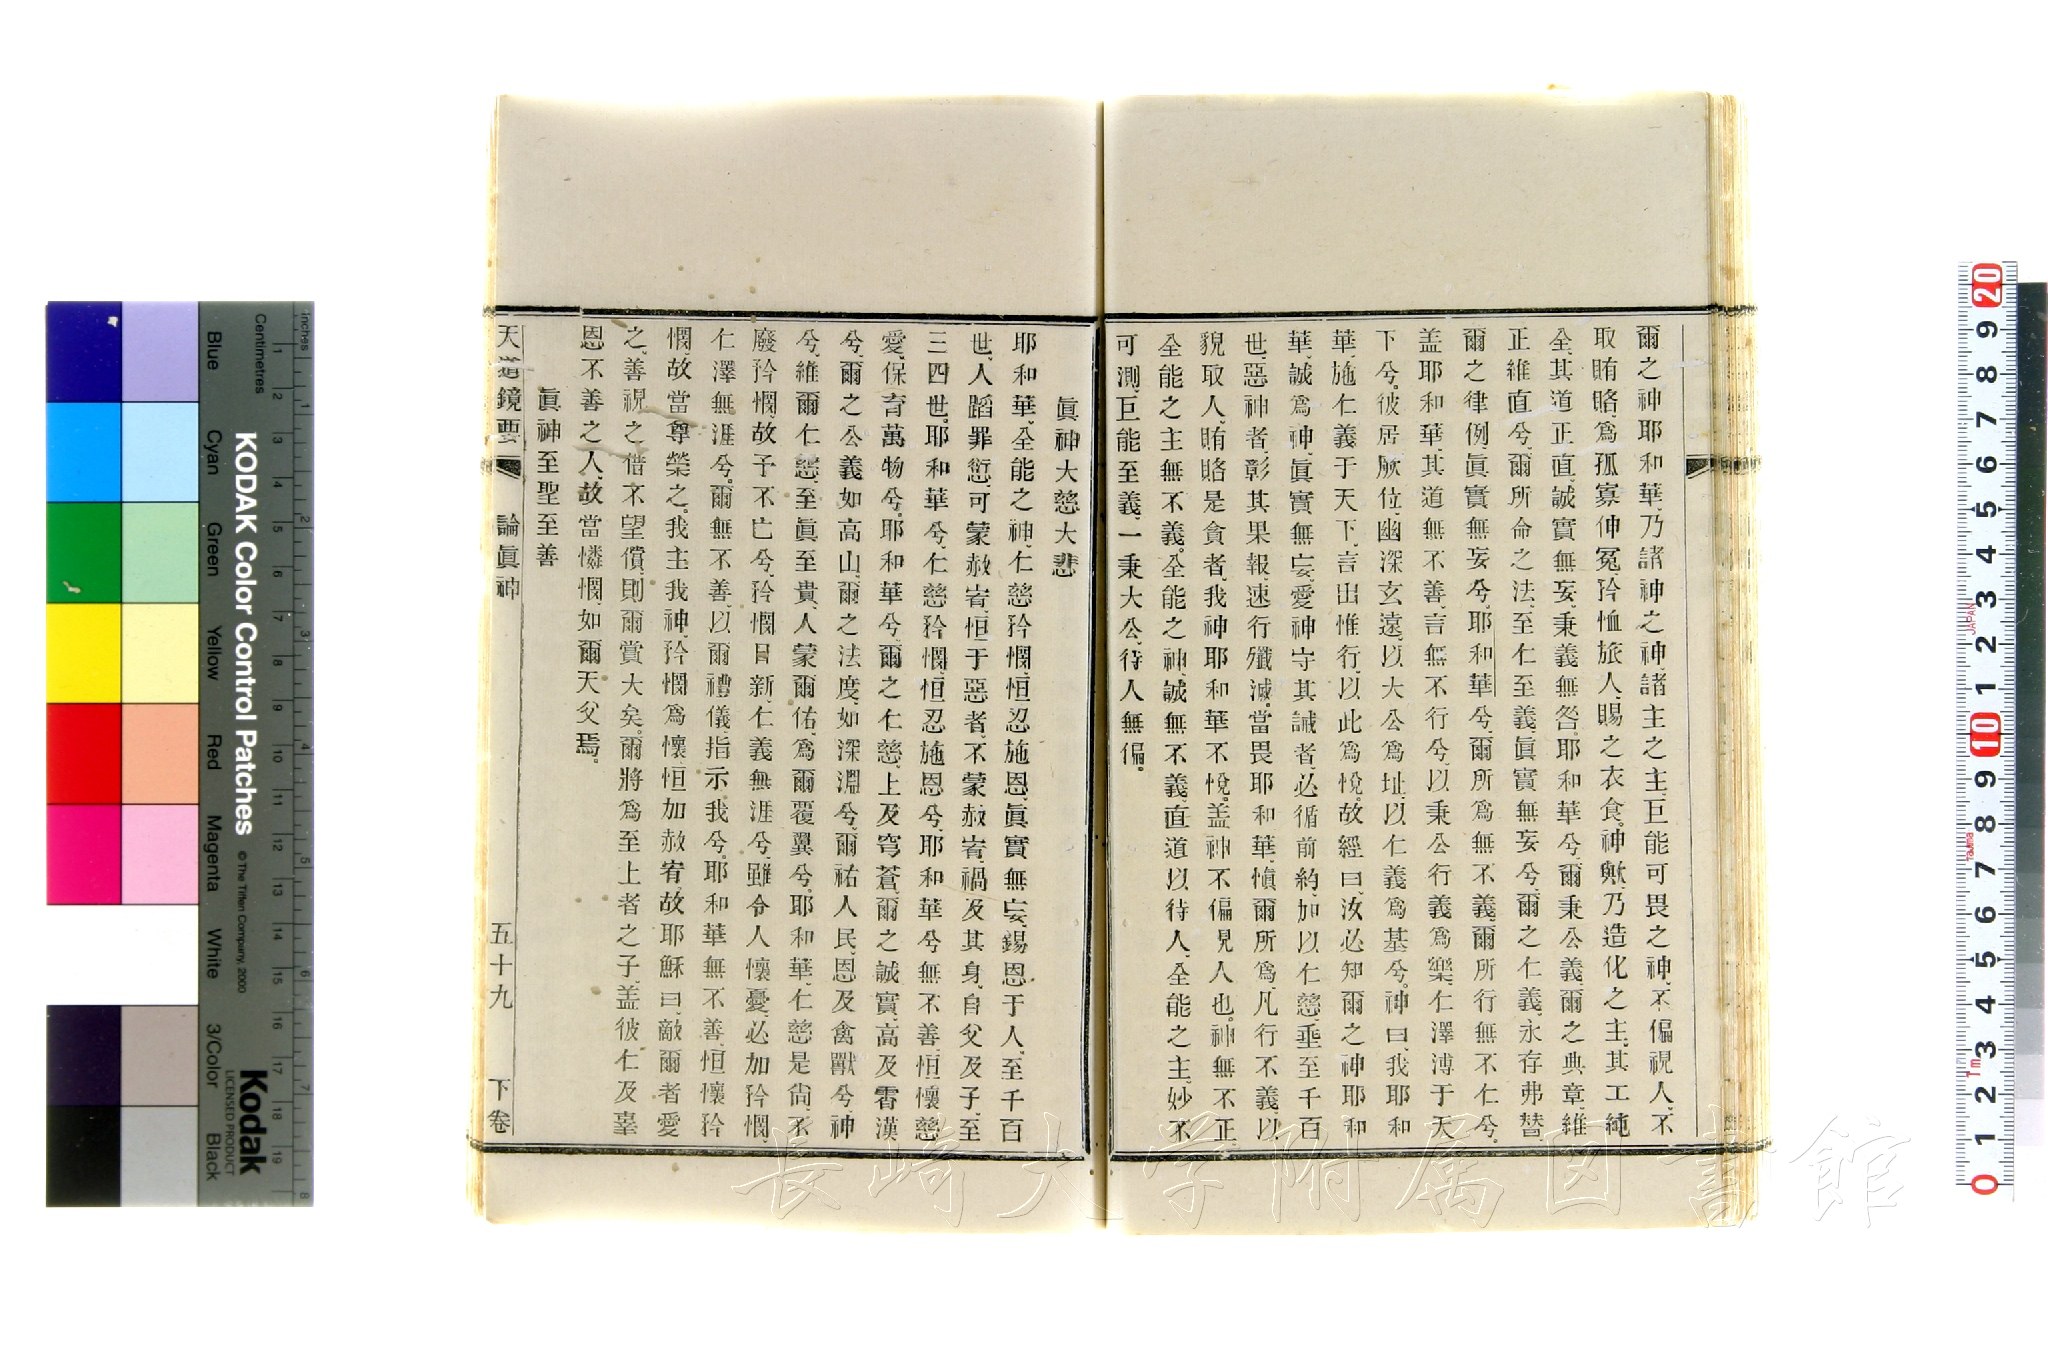 爾之神耶和華、乃諸神之神、諸主之主、巨能可畏之神、不偏視人、不
取賄賂、爲孤寡伸冤、矜恤旅人、賜之衣食。神歟、乃造化之主、其工純
全、其道正直、誠實無妄、秉義無咎。耶和華兮、爾秉公義、爾之典章、維
正維直兮、爾所命之法、至仁至義、眞實無妄兮、爾之仁義、永存弗替
爾之律例、眞實無妄兮、耶和華兮、爾所爲無不義、爾所行無不仁兮。
盖耶和華、其道無不善、言無不行兮、以秉公行義爲樂、仁澤溥于天
下兮。彼居厥位、幽深玄遠、以大公爲址、以仁義爲基兮。神曰、我耶和
華、施仁義于天下、言出惟行、以此爲悅。故經曰、汝必知爾之神耶和
華、誠爲神、眞實無妄、愛神守其誡者、必循前約、加以仁慈、垂至千百
世、惡神者、彰其果報、速行殲滅。當畏耶和華、愼爾所爲、凡行不義、以
貌取人、賄賂是貪者、我神耶和華不悅。盖神不偏見人也。神無不正、
全能之主無不義。全能之神、誠無不義、直道以待人、全能之主、妙不
可測、巨能至義、一秉大公、待人無偏。
眞神大慈大悲
耶和華、全能之神、仁慈矜憫、恒忍施恩、眞實無妄、錫恩于人、至千百
世、人蹈罪愆、可蒙赦宥、恒于惡者、不蒙赦宥、禍及其身、自父及子、至
三四世。耶和華兮、仁慈矜憫、恒忍施恩兮、耶和華兮、無不善、恒懷慈
愛、保育萬物兮。耶和華兮、爾之仁慈、上及穹蒼、爾之誠實、高及霄漢
兮、爾之公義如高山、爾之法度、如深淵兮、爾祐人民、恩及禽獸兮、神
兮、維爾仁慈、至眞至貴、人蒙爾佑、爲爾覆翼兮。耶和華、仁慈是尙、不
廢矜憫、故予不亡兮、矜憫日新、仁義無涯兮、雖令人懷憂、必加矜憫、
仁澤無涯兮。爾無不善、以爾禮儀、指示我兮。耶和華無不善、恒懷矜
憫、故當尊榮之。我主我神、矜憫爲懷、恒加赦宥、故耶穌曰、敵爾者愛
之、善視之、借不望償、則爾賞大矣。爾將爲至上者之子、盖彼仁及辜
恩不善之人、故當憐憫、如爾天父焉。
眞神至聖至善
天道鏡要 論眞神 五十九 下卷
長崎大学附属図書館
KODAK Color Control Patches
© The Tiffen Company, 2000
Kodak
LICENSED PRODUCT
Inches
Centimetres
Blue
Cyan
Green
Yellow
Red
Magenta
White
3/Color
Black